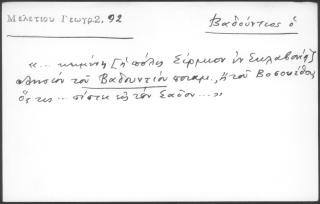 Μελετίου Γεωγρ2, 92
Βαδούντιος ὁ
«... κειμένη [ἡ πόλις Σίρμιον ἐν Σκλαβονίᾳ]
πλησίον τοῦ Βαδουντίου ποταμ., ἢ τοῦ Βοσουέθου,
ὅςτις ... πίπτει εἰς τὸν Σάβον ...»